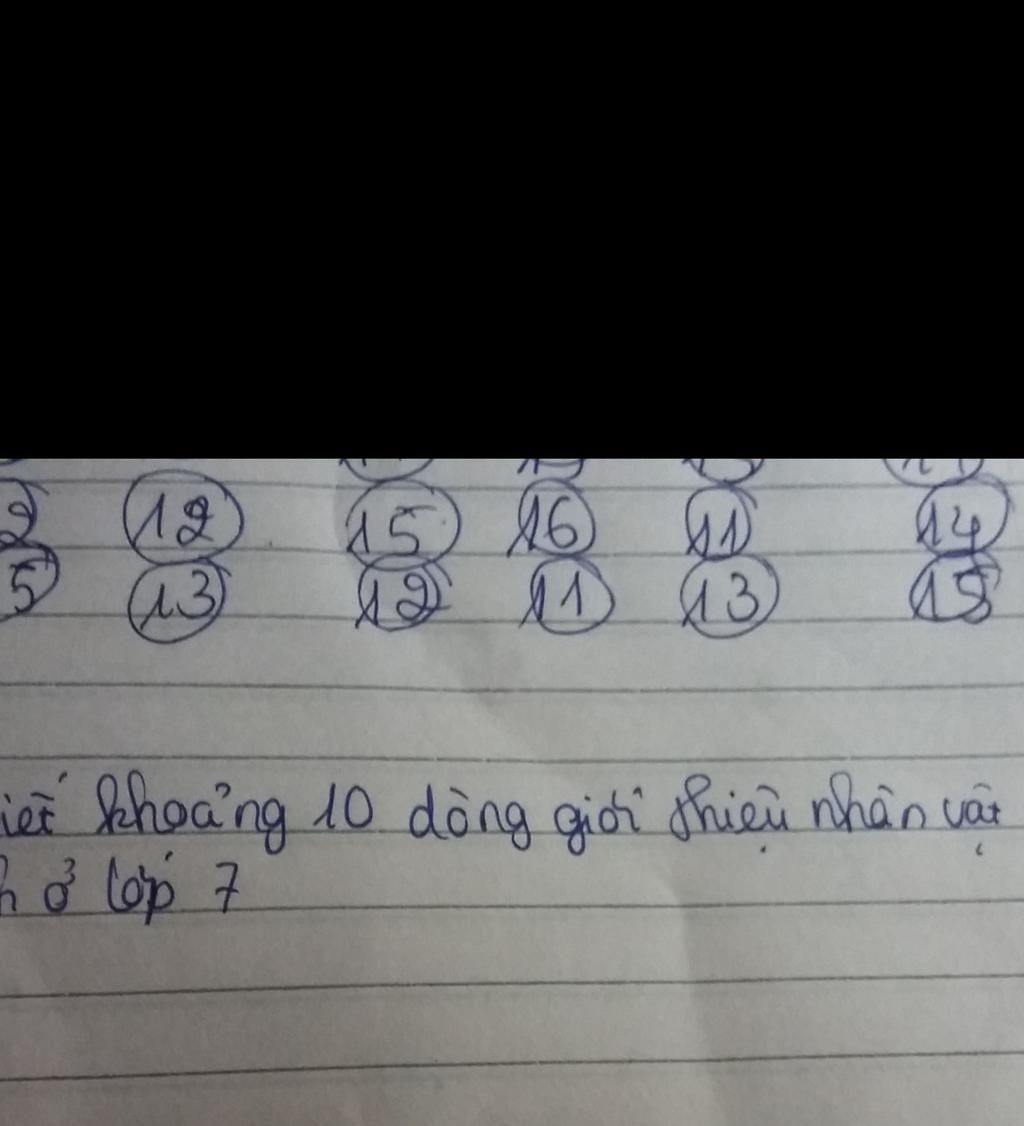 2 12 15 16 11 14
5 13 12 11 13 15
khoảng 10 dòng giới thiệu nhân vật
ở lớp 7